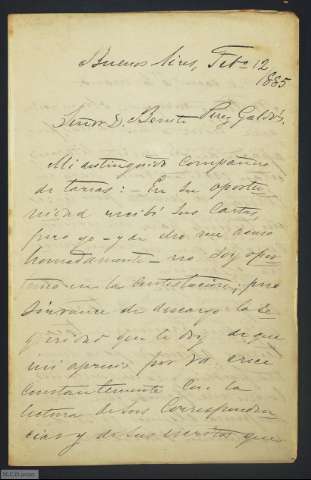 Buenos Aires, Feb. 12
1885
Señor D. Benito Perez Galdós.
Mi distinguido compañero
de tareas: – En su oportu-
nidad recibí sus cartas
pero yo – y de ello me acuso
honradamente – no soy opor
tuno en la contestación; pero
sírvame de descargo la se
guridad que le doy de que
mi aprecio por Vd. crece
constantemente con la
lectura de sus corresponden
cias y de sus escritos que